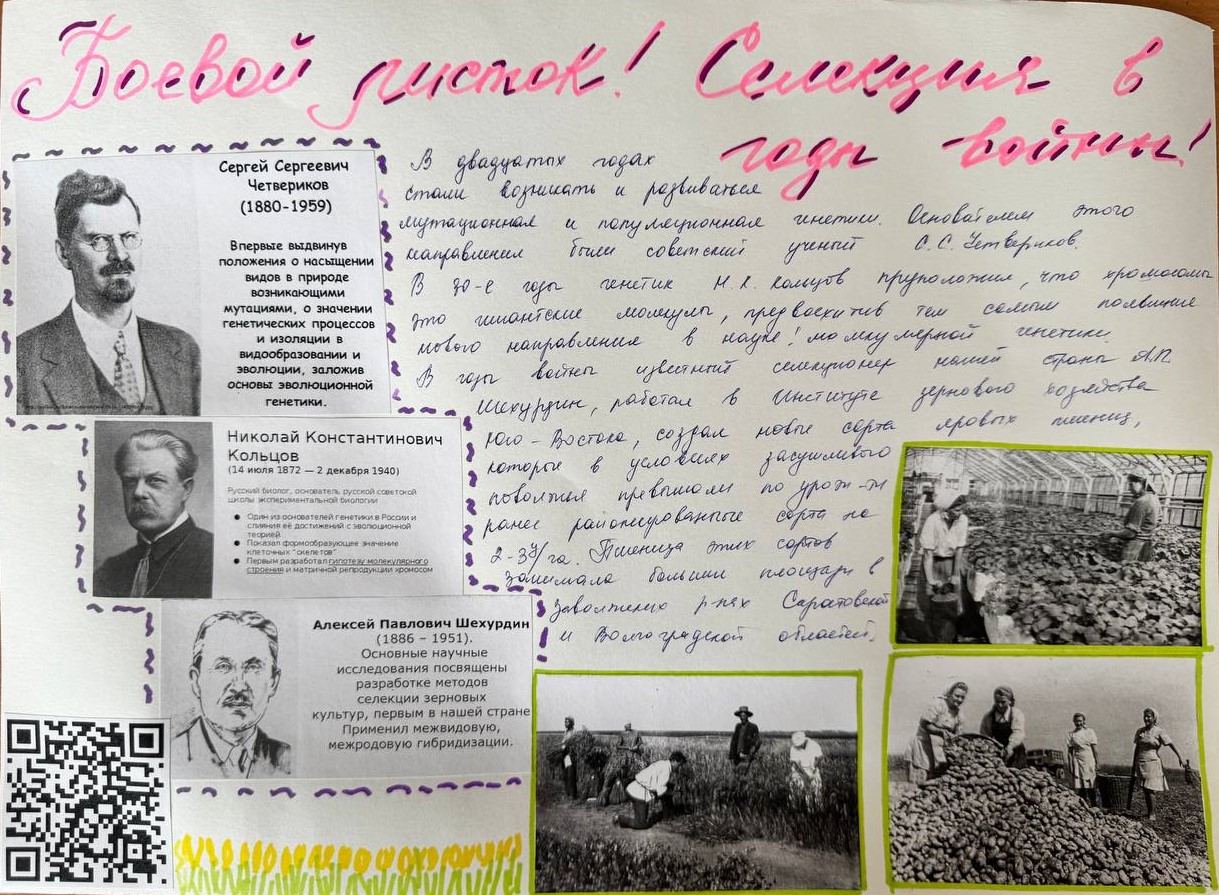 Боевой листок! Селекция в
годы войны!
Сергей Сергеевич
Четвериков
(1880-1959)
Впервые выдвинув
положения о насыщении
видов в природе
возникающими
мутациями, о значении
генетических процессов
и изоляции в
видообразовании и
эволюции, заложив
основы эволюционной
генетики.
Николай Константинович
Кольцов
(14 июля 1872 — 2 декабря 1940)
Русский биолог, основатель русской советской
школы экспериментальной биологии
● Один из основателей генетики в России и
слияния её достижений с эволюционной
теорией
● Показал формообразующее значение
клеточных "скелетов"
● Первым разработал гипотезу молекулярного
строения и матричной репродукции хромосом
Алексей Павлович Шехурдин
(1886 – 1951).
Основные научные
исследования посвящены
разработке методов
селекции зерновых
культур, первым в нашей стране
Применил межвидовую,
межродовую гибридизации.
В двадцатых годах
стали возникать и развиваться
мутационная и популяционная генетики. Основателем этого
направления были советский ученый С.С.Четвериков.
В 30-е годы генетик Н.К.Кольцов предположил, что хромосомы
это гигантские молекулы, предвосхитив тем самым появление
нового направления в науке! молекулярной генетики.
В годы войны известный селекционер нашей страны А.П.
Шехурдин, работая в Институте зернового хозяйства
Юго-Востока, создал новые сорта яровых пшениц,
которые в условиях засушливого
поволжья превышали по урож-ти
ранее районированные сорта на
2-3ц/га. Пшеница этих сортов
занимала большие площади в
Заволжских р-нах Саратовской
и Волгоградской областей.